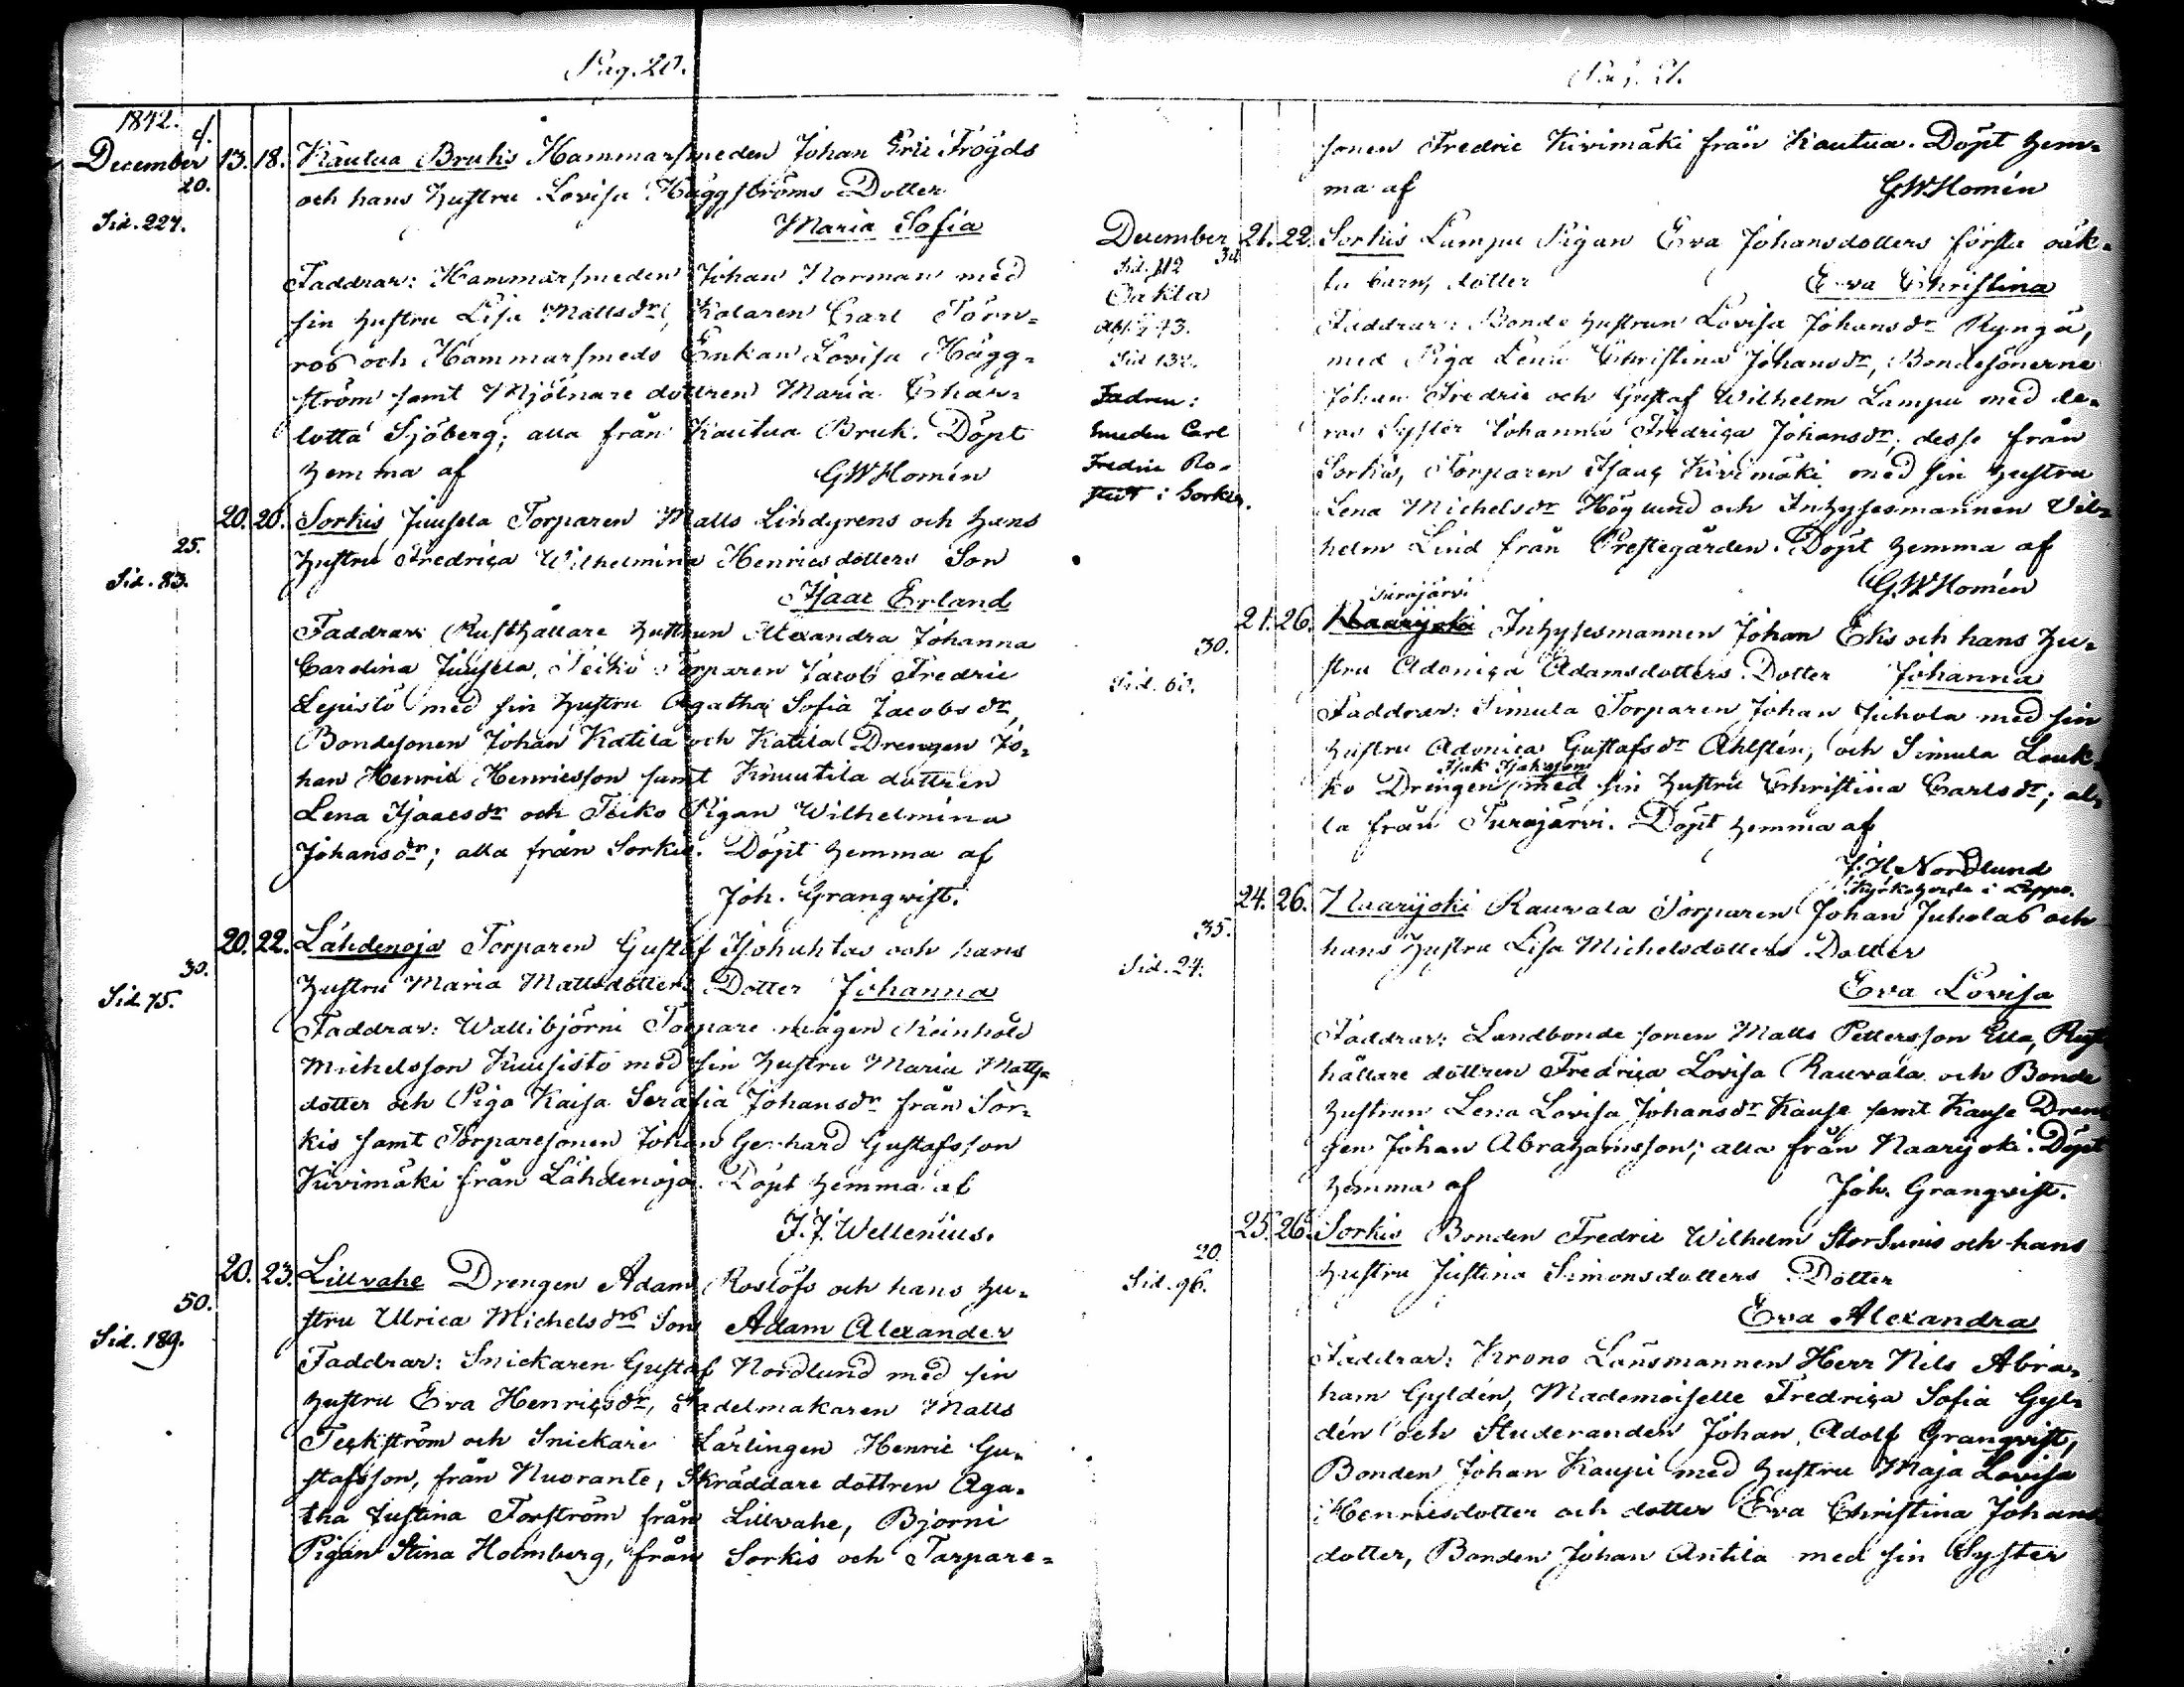 Pag. 20.
1842.
December 13. 18. Kautua Bruks Hammarsmeden Johan Eric Fröyds
20. och hans hustru Lovisa Häggströms Dotter
Sid. 227. Maria Sofia
Faddrar: Hammarsmeden Johan Norman med
sin hustru Lisa Mattsdr, Kolaren Carl Törn-
ros och Hammarsmeds Enkan Lovisa Hägg-
ström samt Mjölnare dottren Maria Char-
lotta Sjöberg; alla från Kautua Bruk. Döpt
hemma af GWHomén
20. 26. Sorkis Juusela Torparen Matts Lindgrens och hans
25. hustru Fredrica Wilhelmina Henricsdotters Son
Sid. 83. Isaac Erland
Faddrar: Rusthållare hustrun Alexandra Johanna
Carolina Juusela, Teiko Torparen Jacob Fredric
Lepistö med sin hustru Agatha Sofia Jacobsdr,
Bondesonen Johan Katila och Katila Drengen Jo-
han Henric Henricsson samt Knuutila dottren
Lena Isaacsdr och Teiko Pigan Wilhelmina
Johansdr; alla från Sorkis. Döpt hemma af
Joh. Granqvist.
20. 22. Lähdenoja Torparen Gustaf Isohuhtas och hans
30. hustru Maria Mattsdotters Dotter Johanna
Sid. 75.
Faddrar: Wallibjörni Torpare mågen Reinhold
Michelsson Kuusisto med sin hustru Maria Matts-
dotter och Piga Kaisa Serafia Johansdr från Sor-
kis samt Torparesonen Johan Gerhard Gustafsson
Kivimäki från Lähdenoja. Döpt hemma af
J. J. Wellenius.
20. 23. Lillvahe Drengen Adam Roslöfs och hans hu-
50. stru Ulrica Michelsdrs Son Adam Alexander
Sid. 189.
Faddrar: Snickaren Gustaf Nordlund med sin
hustru Eva Henricsdr, Sadelmakaren Matts
Teckström och Snickare Lärlingen Henric Gu-
stafsson, från Nuorante, Skräddare dottren Aga-
tha Justina Forström från Lillvahe, Björni
Pigan Stina Holmberg, från Sorkis och Torpare-
Pag. 21.
sonen Fredric Kivimäki från Kautua. Döpt hem-
ma af GWHomén
December 21. 22. Sorkis Lampu Pigan Eva Johansdotters första oäk-
Sid. 112
ta barn, dotter Eva Christina
Oäkta
Faddrar: Bonde hustrun Lovisa Johansdr Ryngä,
Sid 132.
med Piga Lena Christina Johansdr, Bondesönerne
Fadren:
Johan Fredric och Gustaf Wilhelm Lampu med de-
Smeden Carl
ras Syster Johanna Fredrica Johansdr; desse från
Fredric Ro-
Sorkis, Torparen Isaac Kivimäki med sin hustru
i Sorkis.
Lena Michelsdr Höglund och Inhysesmannen Vil-
helm Lind från Prestegården. Döpt hemma af
GWHomén
Turajärvi
21. 26. Naarijoki Inhysesmannen Johan Eks och hans hu-
30. stru Adonica Adamsdotters Dotter Johanna
Sid. 60.
Faddrar: Simula Torparen Johan Juhola med sin
hustru Adonica Gustafsdr Ahlstén, och Simula Louk-
Isak Isaksson
ko Drengen med sin hustru Christina Carlsdr; al-
la från Turajärvi. Döpt hemma af
J. H. Nordlund
Kyrkoherde i Lappo.
24. 26. Naarijoki Rauvala Torparen Johan Juholas och
35. hans hustru Lisa Michelsdotters Dotter
Sid. 24. Eva Lovisa
Faddrar: Landbonde sonen Matts Pettersson Ella, Rust-
hållare dottren Fredrica Lovisa Rauvala och Bonde
hustrun Lena Lovisa Johansdr Kause samt Kause Dren-
gen Johan Abrahamsson; alla från Naarijoki. Döpt
hemma af Joh. Granqvist.
25. 26. Sorkis Bonden Fredric Wilhelm StorSunis och hans
20. hustru Justina Simonsdotters Dotter
Sid. 96. Eva Alexandra
Faddrar: Krono Länsmannen Herr Nils Abra-
ham Gyldén, Mademoiselle Fredrica Sofia Gyl-
dén och Studeranden Johan Adolf Granqvist,
Bonden Johan Kauppi med hustru Maja Lovisa
Henricsdotter och dotter Eva Christina Johans
dotter, Bonden Johan Antila med sin Syster